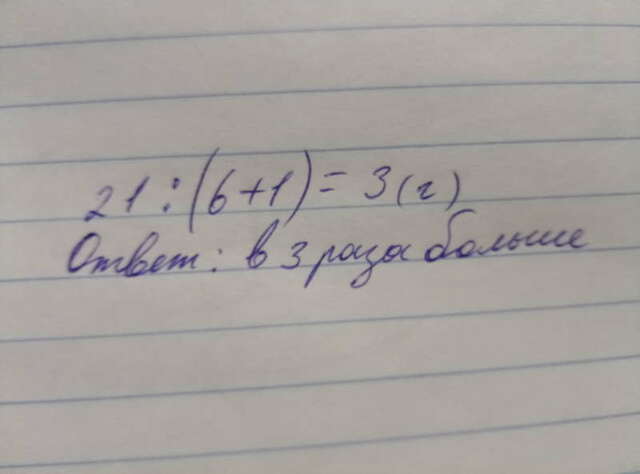 21 : (6+1) = 3 (г)
Ответ: в 3 раза больше